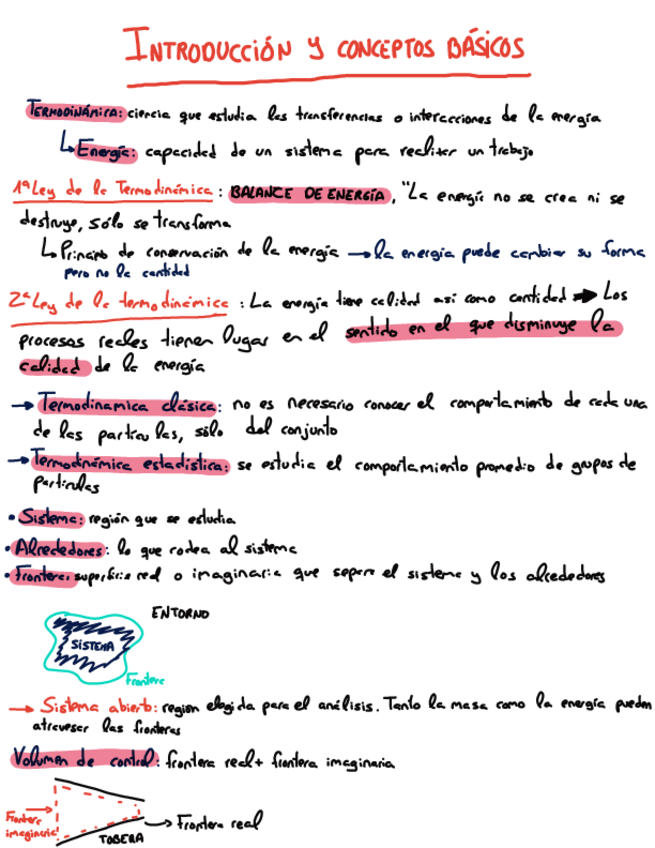 INTRODUCCIÓN Y CONCEPTOS BÁSICOS
TERMODINÁMICA: ciencia que estudia las transferencias o interacciones de la energía
Energía: capacidad de un sistema para realizar un trabajo
1ª Ley de la Termodinámica: BALANCE DE ENERGÍA, "La energía no se crea ni se
destruye, sólo se transforma
Principio de conservación de la energía → la energía puede cambiar su forma
pero no la cantidad
2ª Ley de la termodinámica: La energía tiene calidad así como cantidad → Los
procesos reales tienen lugar en el sentido en el que disminuye la
calidad de la energía
→ Termodinámica clásica: no es necesario conocer el comportamiento de cada una
de las partículas, sólo del conjunto
→ Termodinámica estadística: se estudia el comportamiento promedio de grupos de
partículas
• Sistema: región que se estudia
• Alrededores: lo que rodea al sistema
• Frontera: superficie real o imaginaria que separa el sistema y los alrededores
ENTORNO
SISTEMA
Frontera
→ Sistema abierto: región elegida para el análisis. Tanto la masa como la energía pueden
atravesar las fronteras
Volumen de control: frontera real + frontera imaginaria
Frontera
imaginaria
→ Frontera real
TOBERA